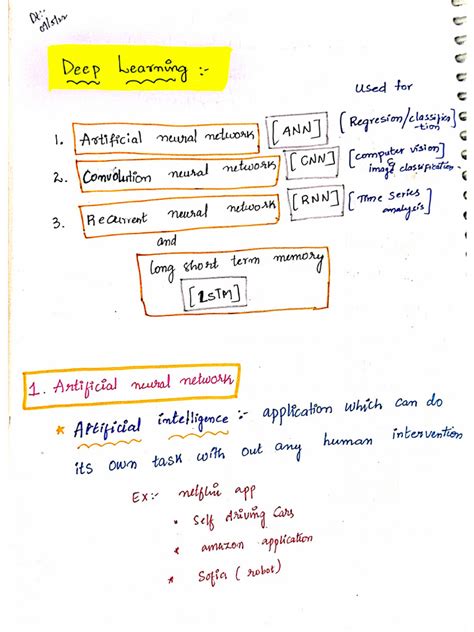 Dt:-
Deep Learning :-
Used for
1. Artificial neural network [ANN] [Regresion/classifica
-tion]
2. Convolution neural network [CNN] [computer vision]
image classification
3. Recurrent neural network [RNN] [Time Series
analysis]
and
long short term memory
[LSTM]
1. Artificial neural network
* Artificial intelligence :- application which can do
its own task with out any human intervention
Ex:- netflix app
* Self driving Cars
* amazon application
* Sofia (robot)